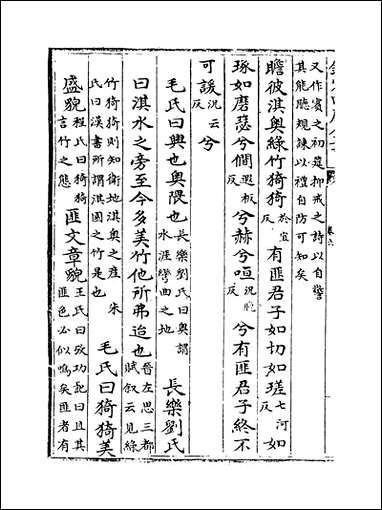 又作賓之初筵抑戒之詩以自警
其能聽規諫以禮自防可知矣
瞻彼淇奧綠竹猗猗於宜反有匪君子如切如瑳七河反如
琢如磨瑟兮僩遐板反兮赫兮咺況晚反兮有匪君子終不
可諼況云反兮
毛氏曰興也奧隈也長樂劉氏曰奧謂水涯彎曲之地長樂劉氏
曰淇水之旁至今多美竹他所弗迨也晉左思三都賦叙云見綠
竹猗猗則知衛地淇奧之產朱氏曰漢書所謂淇園之竹是也毛氏曰猗猗美
盛貌程氏曰猗猗言竹之態匪文章貌王氏曰攷功記曰且其匪色必似鳴矣匪者有